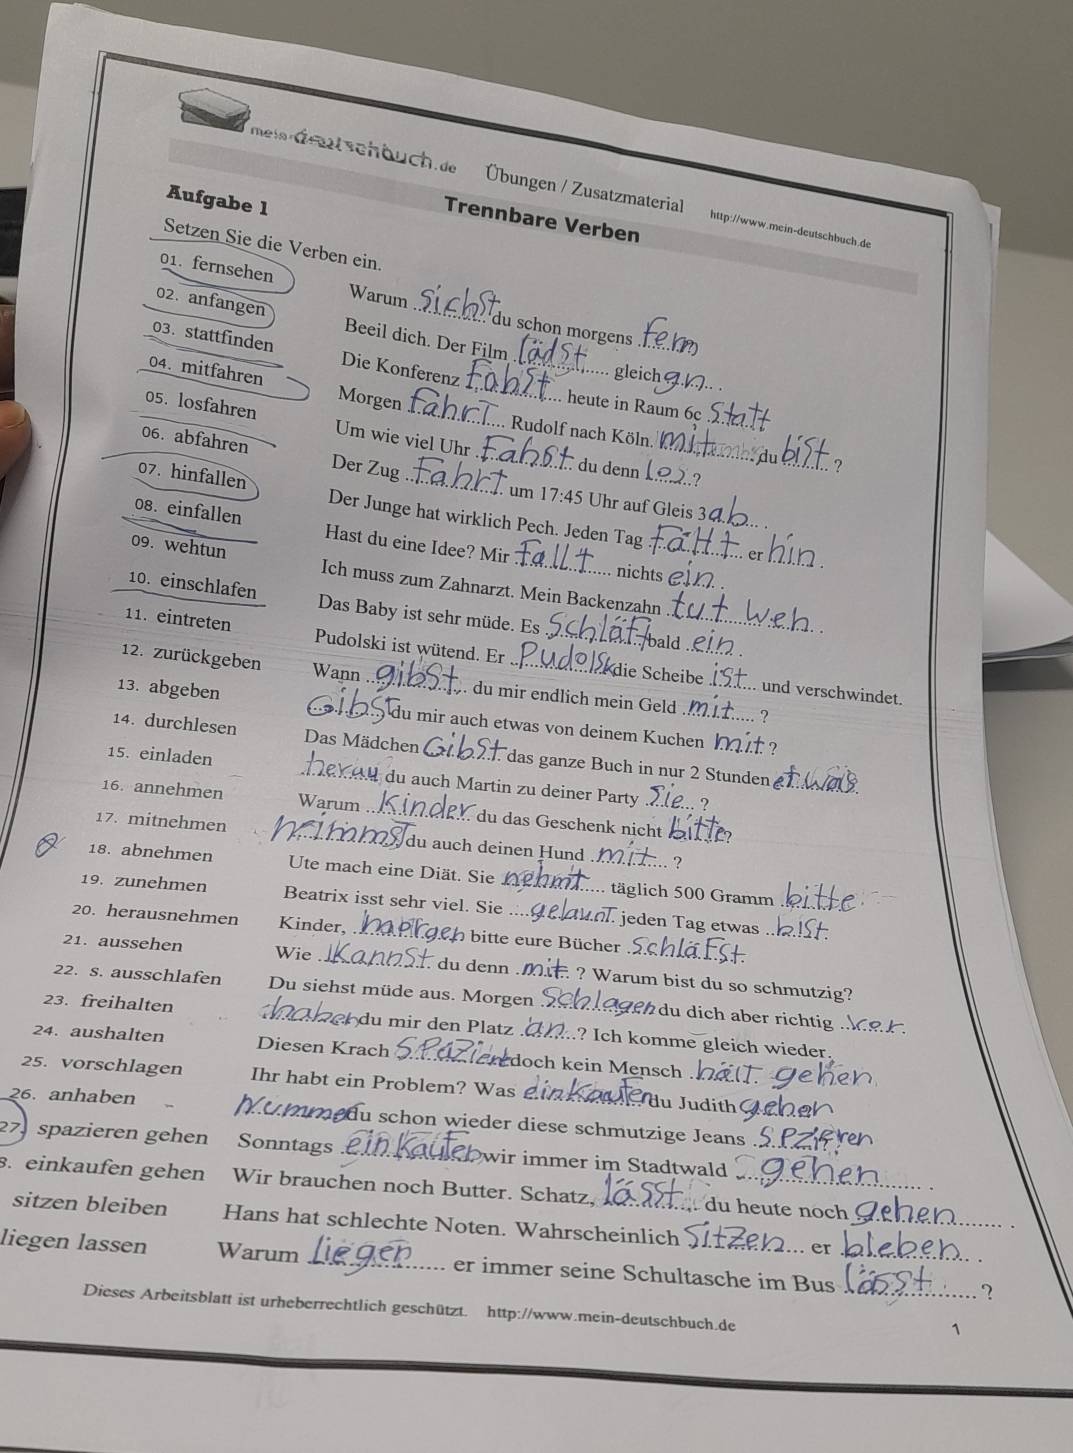 mein-deutschbuch.de Übungen / Zusatzmaterial http://www.mein-deutschbuch.de
Trennbare Verben
Aufgabe 1
Setzen Sie die Verben ein.
01. fernsehen Warum sichst du schon morgens fern
02. anfangen Beeil dich. Der Film lädst gleich an.
03. stattfinden Die Konferenz Fahst heute in Raum 6c Statt
04. mitfahren Morgen fährt Rudolf nach Köln. mit du bist ?
05. losfahren Um wie viel Uhr Fahst du denn los ?
06. abfahren Der Zug Fahrt um 17:45 Uhr auf Gleis 3 ab.
07. hinfallen Der Junge hat wirklich Pech. Jeden Tag Fällt er hin.
08. einfallen Hast du eine Idee? Mir fallt nichts ein.
09. wehtun Ich muss zum Zahnarzt. Mein Backenzahn tut weh.
10. einschlafen Das Baby ist sehr müde. Es Schläft bald ein.
11. eintreten Pudolski ist wütend. Er Pudolsk die Scheibe ist und verschwindet.
12. zurückgeben Wann gibst du mir endlich mein Geld mit ?
13. abgeben Gibst du mir auch etwas von deinem Kuchen mit ?
14. durchlesen Das Mädchen Gibst das ganze Buch in nur 2 Stunden etwas.
15. einladen herau du auch Martin zu deiner Party Sie ?
16. annehmen Warum Kinder du das Geschenk nicht bitte?
17. mitnehmen nimmst du auch deinen Hund mit ?
18. abnehmen Ute mach eine Diät. Sie nehmt täglich 500 Gramm bitte.
19. zunehmen Beatrix isst sehr viel. Sie gelaunt jeden Tag etwas bist.
20. herausnehmen Kinder, bitte eure Bücher schläfst.
21. aussehen Wie Kannst du denn mit ? Warum bist du so schmutzig?
22. s. ausschlafen Du siehst müde aus. Morgen Schlagen du dich aber richtig vor.
23. freihalten haben du mir den Platz an ? Ich komme gleich wieder.
24. aushalten Diesen Krach Spazieren doch kein Mensch hält gehen
25. vorschlagen Ihr habt ein Problem? Was einkaufen du Judith gehen
26. anhaben du schon wieder diese schmutzige Jeans spzieren
27. spazieren gehen Sonntags einkaufen wir immer im Stadtwald gehen.
8. einkaufen gehen Wir brauchen noch Butter. Schatz, lässt du heute noch gehen.
sitzen bleiben Hans hat schlechte Noten. Wahrscheinlich Sitzen er bleben.
liegen lassen Warum liegen er immer seine Schultasche im Bus lässt ?
Dieses Arbeitsblatt ist urheberrechtlich geschützt. http://www.mein-deutschbuch.de 1